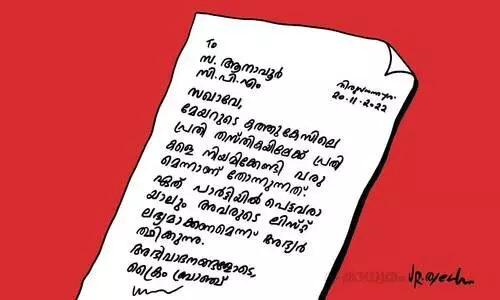 To
സ. ആനാവൂർ
സി.പി.എം
തിരുവനന്തപുരം
20-11-2022
സഖാവേ,
മേയറുടെ കത്തുകേസിലെ
പ്രതി തസ്തികയിലേക്ക് പ്രതി
കളെ നിയമിക്കേണ്ടി വരു
മെന്നാണ് തോന്നുന്നത്.
ഏത് പാർട്ടിയിൽ പെട്ടവരാ
യാലും അവരുടെ ലിസ്റ്റ്
ലഭ്യമാക്കണമെന്ന് അഭ്യർ
ത്ഥിക്കുന്നു.
അഭിവാദനങ്ങളോടെ,
ക്രൈം ബ്രാഞ്ച്